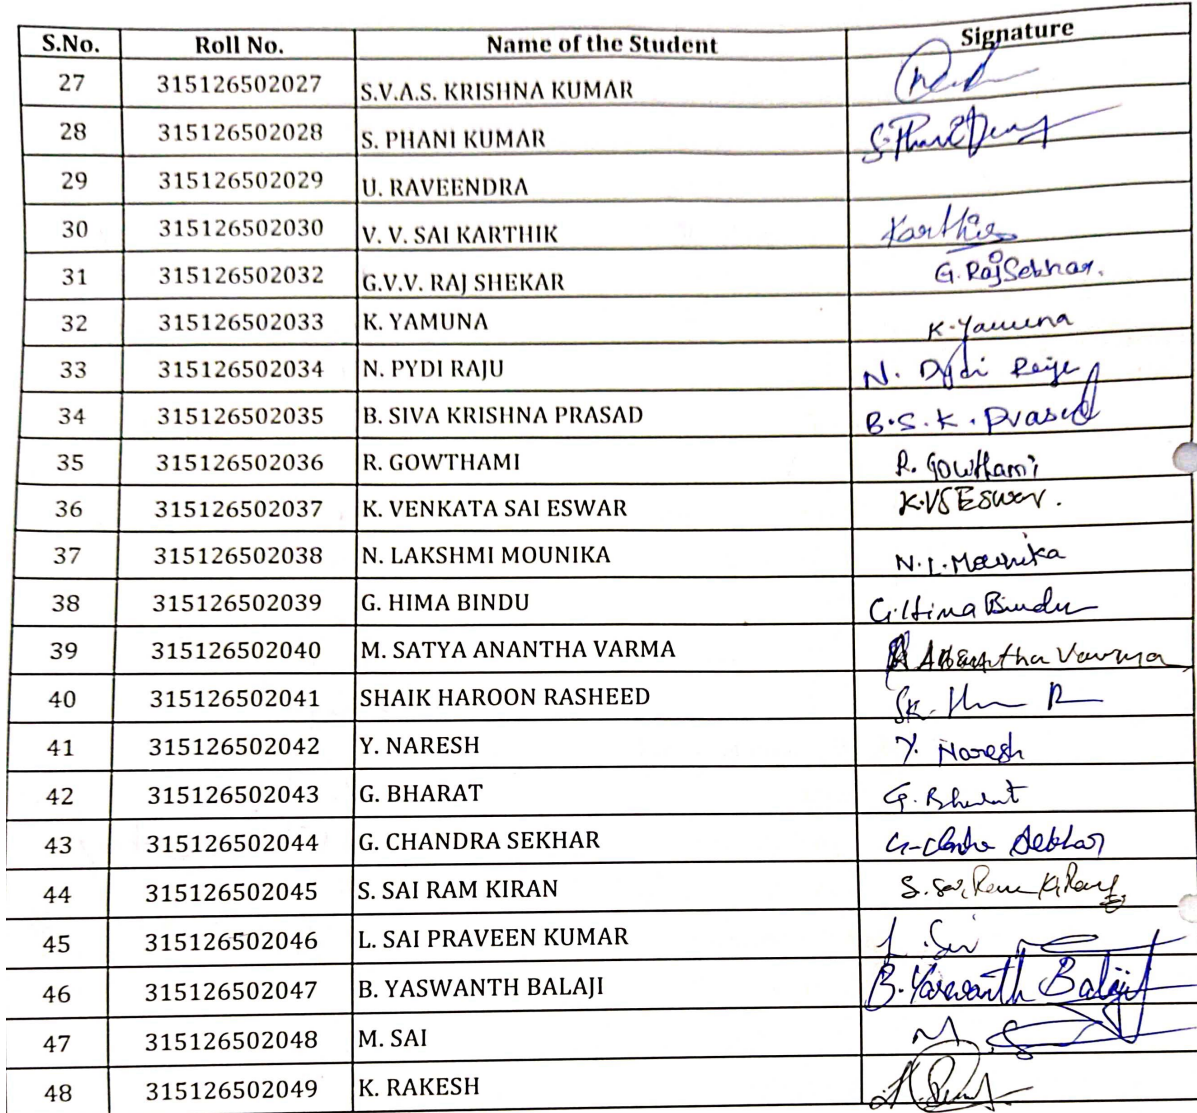 S.No. Roll No. Name of the Student Signature
27 315126502027 S.V.A.S. KRISHNA KUMAR
28 315126502028 S. PHANI KUMAR
29 315126502029 U. RAVEENDRA
30 315126502030 V. V. SAI KARTHIK Karthik
31 315126502032 G.V.V. RAJ SHEKAR G. RajSekhar.
32 315126502033 K. YAMUNA K. Yamuna
33 315126502034 N. PYDI RAJU N. Pydi Raju
34 315126502035 B. SIVA KRISHNA PRASAD B.S.K. Prasad
35 315126502036 R. GOWTHAMI R. Gowthami
36 315126502037 K. VENKATA SAI ESWAR K.VS Eswar.
37 315126502038 N. LAKSHMI MOUNIKA N.L.Mounika
38 315126502039 G. HIMA BINDU G.Hima Bindu
39 315126502040 M. SATYA ANANTHA VARMA Anantha Varma
40 315126502041 SHAIK HAROON RASHEED SK.
41 315126502042 Y. NARESH Y. Naresh
42 315126502043 G. BHARAT G. Bharat
43 315126502044 G. CHANDRA SEKHAR G. Chandra Sekhar
44 315126502045 S. SAI RAM KIRAN S. Sai Ram Kiran
45 315126502046 L. SAI PRAVEEN KUMAR L. Sai
46 315126502047 B. YASWANTH BALAJI B. Yaswanth Balaji
47 315126502048 M. SAI M. S
48 315126502049 K. RAKESH